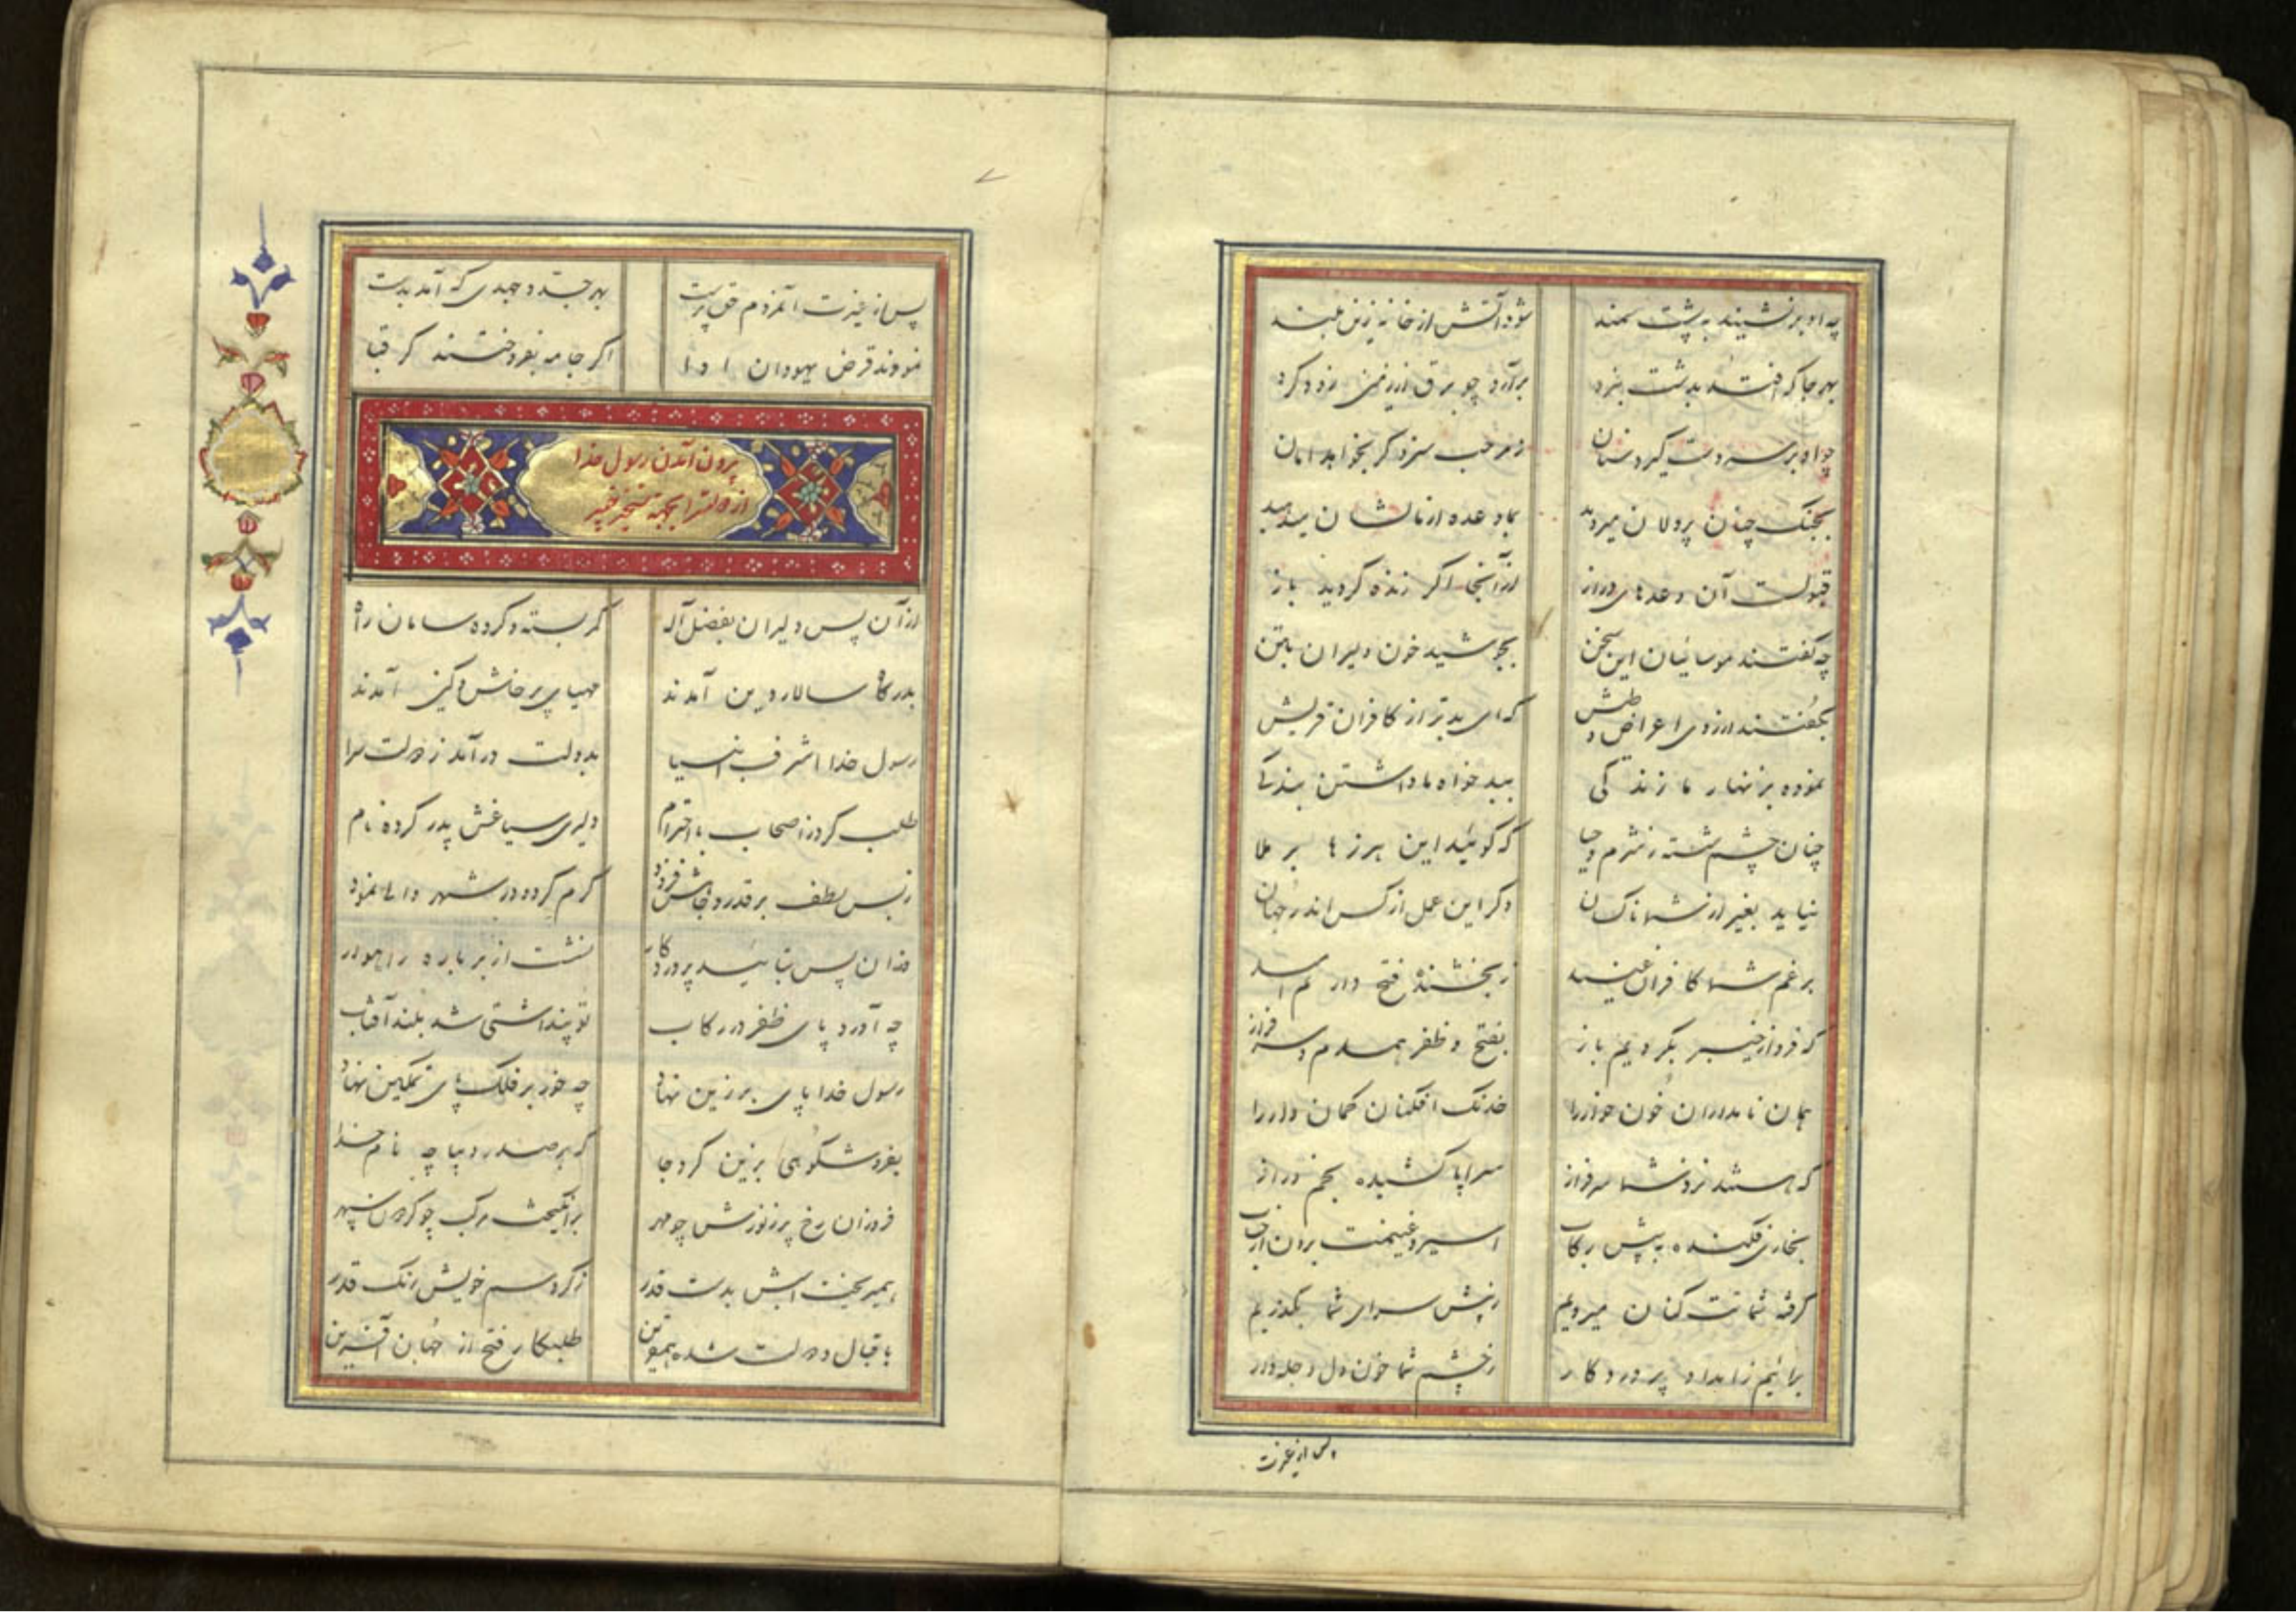 چه او برنشیند به پشت سمند شود آتش از خانه زین بلند
بهر جا که افتد بدشت نبرد برآرد چو برق از زمین زود کرد
چو او بر سر دست گیرد سنان ز مرحب سزد کر بخواهد امان
بجنک چنان پردلان میروید بما وعده از مالشان میدهید
قبولست آن وعدهای دراز از آنجا اکر زنده کردید باز
چه گفتند موسائیان این سخن بجوشید خون دلیران بتن
بگفتند از روی اعراض و طیش که ای بدتر از کافران قریش
نموده بزنهار ما زندکی ببدخواه ما داشتن بندکی
چنان چشم شسته ز شرم و حیا که کوئید این هرزها بر ملا
نیاید بغیر از شما ناکسان دکر این عمل از کس اندر جهان
برغم شما کافران عنید ز بخشنده فتح داریم امید
که فردا ز خیبر بکردیم باز بفتح و ظفر همدم و سرفراز
همان نامداران خون خوار را خدنک افکنان کمان دار را
که هستند نزد شما سرفراز سراپا کشیده بخم دراز
بخاری فکنده به پیش رکاب اسیر و غنیمت برون از حساب
کرفته شماتت کنان میرویم ز پیش سرای شما بکذریم
برانیم ز امداد پروردکار ز چشم شما خون دل دجله وار
پس از غیرت
پس از غیرت آنمردم حق پرست بهر جد و جهدی که آمد بدست
نمودند قرض یهودان ادا اکر جامه بفروختند کر قبا
برون آمدن رسول خدا
از دولتسرا بجهة تسخیر خیبر
از آن پس دلیران بفضل آله کمر بسته و کرده سامان راه
بدرکاه سالار دین آمدند مهیای پرخاش و کین آمدند
رسول خدا اشرف انبیا بدولت درآمد ز دولت سرا
طلب کرد ز اصحاب با احترام دلیری سباعش پدر کرده نام
ز بس لطف بر قدر و جاهش فزود کرم کرده در شهر والی نمود
وزان پس بتائید پروردکار نشست از بر باره راهوار
چه آورد پای ظفر در رکاب تو پنداشتی شد بلند آفتاب
رسول خدا پای بر زین نهاد چه خور بر فلک پای تمکین نهاد
بفر و شکوهی بزین کرد جا که بر صدر دیباچه نام خدا
فروزان رخ پر ز نورش چو مهر برانکیخت مرکب چو کردن سپهر
همیریخت اسبش بدست قدر ز کرد سم خویش رنک قدر
باقبال و دولت شده همقرین طلبکار فتح از جهان آفرین